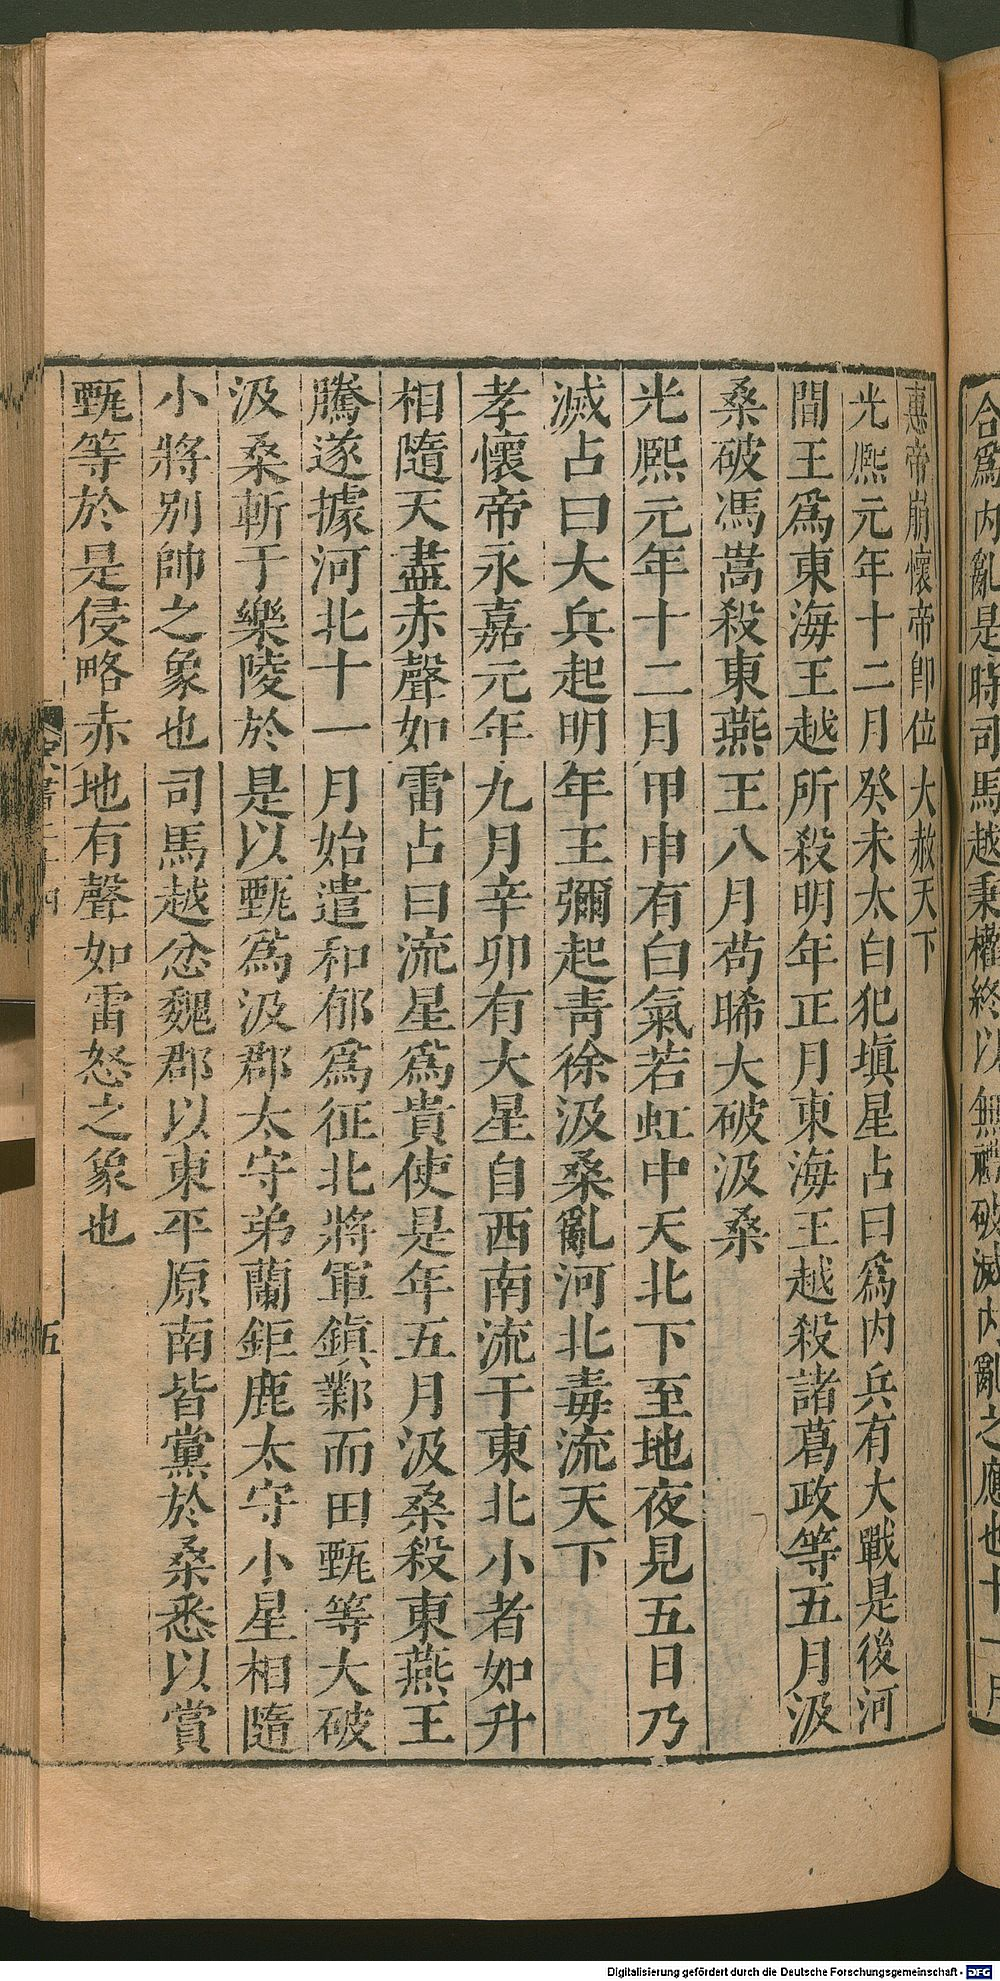 合爲內亂是時司馬越秉權終以無破滅內亂之應也十一月
惠帝崩懷帝卽位大赦天下
光熙元年十二月癸未太白犯塡星占曰爲內兵有大戰是後河
間王爲東海王越所殺明年正月東海王越殺諸葛政等五月汲
桑破馮嵩殺東燕王八月苟晞大破汲桑
光熙元年十二月甲申有白氣若虹中天北下至地夜見五日乃
滅占曰大兵起明年王彌起靑徐汲桑亂河北毒流天下
孝懷帝永嘉元年九月辛卯有大星自西南流于東北小者如升
相隨天盡赤聲如雷占曰流星爲貴使是年五月汲桑殺東燕王
騰遂據河北十一月始遣和郁爲征北將軍鎭鄴而田甄等大破
汲桑斬于樂陵於是以甄爲汲郡太守弟蘭鉅鹿太守小星相隨
小將別帥之象也司馬越忿魏郡以東平原南皆黨於桑悉以賞
甄等於是侵略赤地有聲如雷怒之象也
五
Digitalisierung gefördert durch die Deutsche Forschungsgemeinschaft - DFG